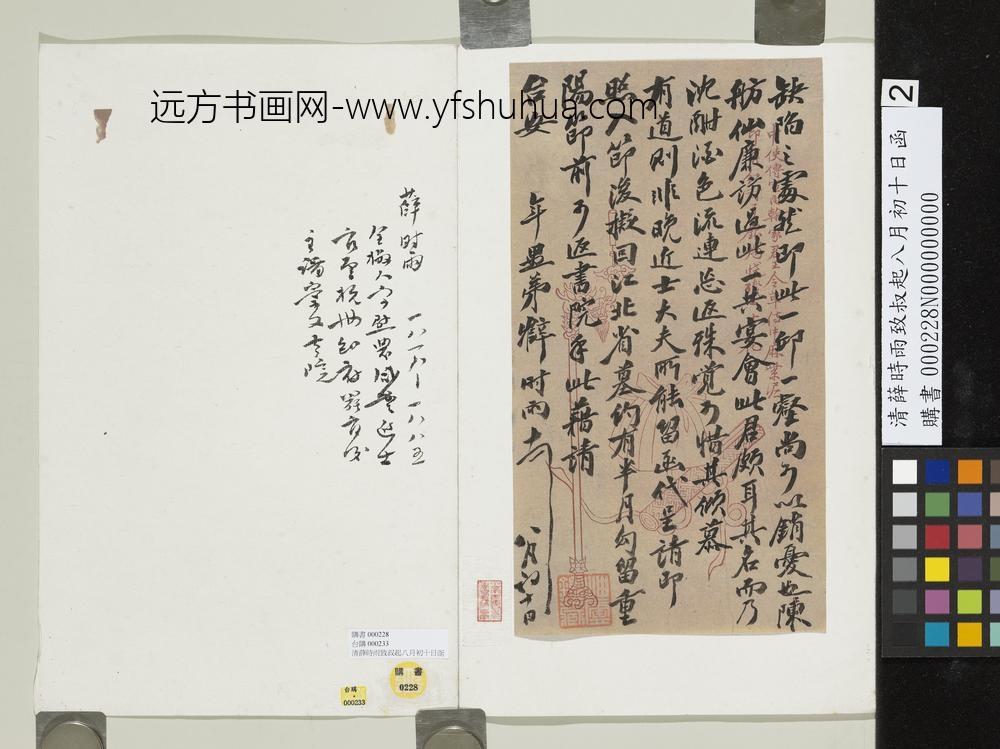 远方书画网-www.yfshuhua.com
缺陷之處然即此一邱一壑尚可以銷憂也陳
舫仙廉訪過此一共宴會此君頗耳其名而乃
沈酣酒色流連忘返殊覺可惜其傾慕
有道則非晚近士大夫所能留函代呈請即
照入節後擬回江北省墓約有半月勾留重
陽節前可返書院手此藉請
台安
年愚弟薛時雨
八月初十日
薛时雨 一八一八-一八八五
全椒人字慰農咸豐進士
官至杭州知府罷官後
主講崇文書院
清薛時雨致叔起八月初十日函
購書 000228N000000000
2
購書 000228
台購 000233
清薛時雨致叔起八月初十日函
購 書
0228
台購
000233